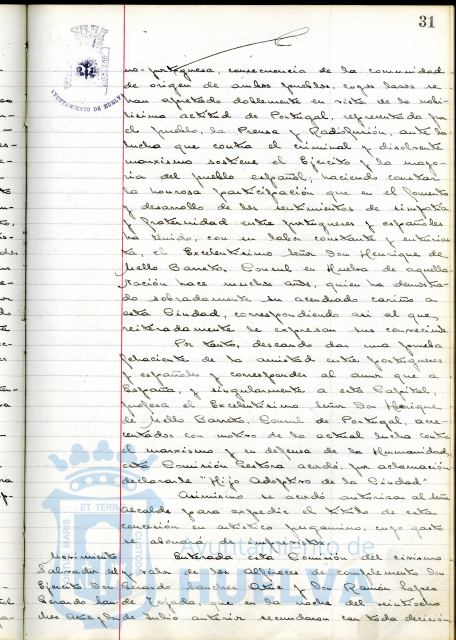 31
AYUNTAMIENTO DE HUELVA
no-portuguesa, consecuencia de la comunidad
de origen de ambos pueblos, cuyos lazos se
han apretado doblemente en vista de la nobi-
lísima actitud de Portugal, representada por
el pueblo, la Prensa y Radiofusión, ante la
lucha que contra el criminal y disolvente
marxismo sostiene el Ejército y la mayo-
ria del pueblo español; haciendo constar
la honrosa participación que en el fomento
y desarrollo de los sentimientos de simpatía
y fraternidad entre portugueses y españoles
ha tenido, con su labor constante y entusias-
ta, el Excelentísimo Señor Don Henrique de
Mello Barreto, Consul en Huelva de aquella
Nación hace muchos años, quien ha demostra-
do sobradamente su acendrado cariño a
esta Ciudad, correspondiendo asi al que,
reiteradamente le expresan sus convecinos.
Por tanto, deseando dar una prueba
fehaciente de la amistad entre portugueses
y españoles y corresponder al amor que a
España, y singularmente a esta Capital,
profesa el Excelentísimo Señor Don Henrique
de Mello Barreto, Consul de Portugal, acre-
centados con motivo de la actual lucha contra
el marxismo y en defensa de la Humanidad,
esta Comisión Gestora acordó, por aclamación
declararle "Hijo Adoptivo de la Ciudad".
Asimismo se acordó autorizar al Señor
Alcalde para expedir el titulo de esta
concesión en artístico pergamino, cuyo gasto
se abonará de imprevistos.
Movimiento
Salvador del
Ejército. Don
Gerardo San-
chez
Enterada esta Comisión del civismo
y valor de los Alféreces de complemento Don
Gerardo Sanchez y Don Ramón Lopez
de Tejada que en la noche del veintiocho
de Julio anterior secundaron con toda decisión
MARIS ET TERRA CUSTODIA
Ayuntamiento de
HUELVA